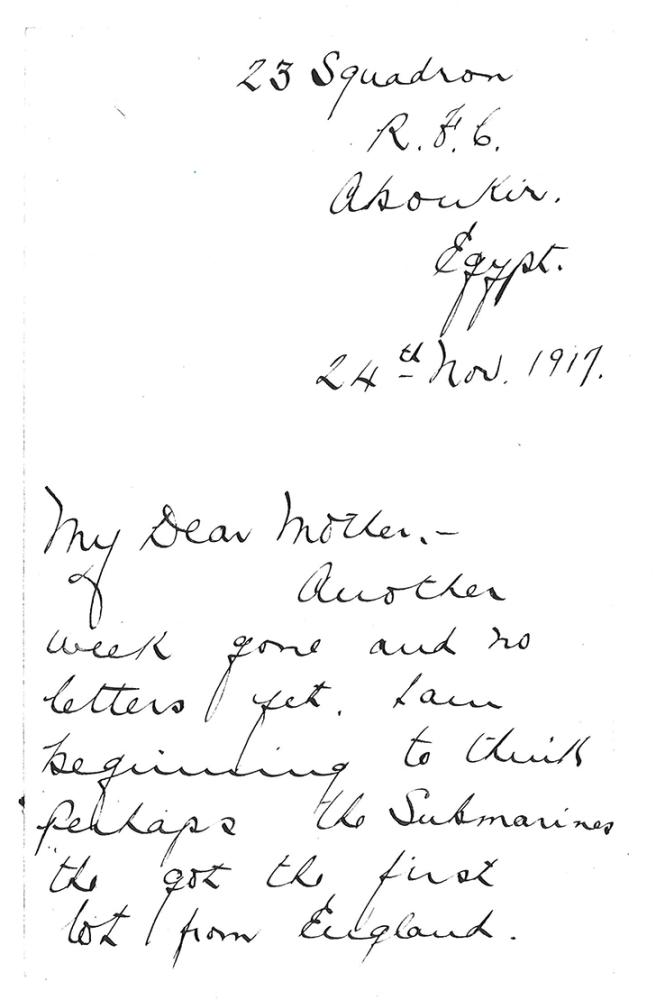 23 Squadron
R.F.C.
Aboukir.
Egypt.
24th Nov. 1917.
My Dear Mother,-
Another
week gone and no
letters yet. I am
beginning to think
perhaps the Submarines
the got the first
lot from England.